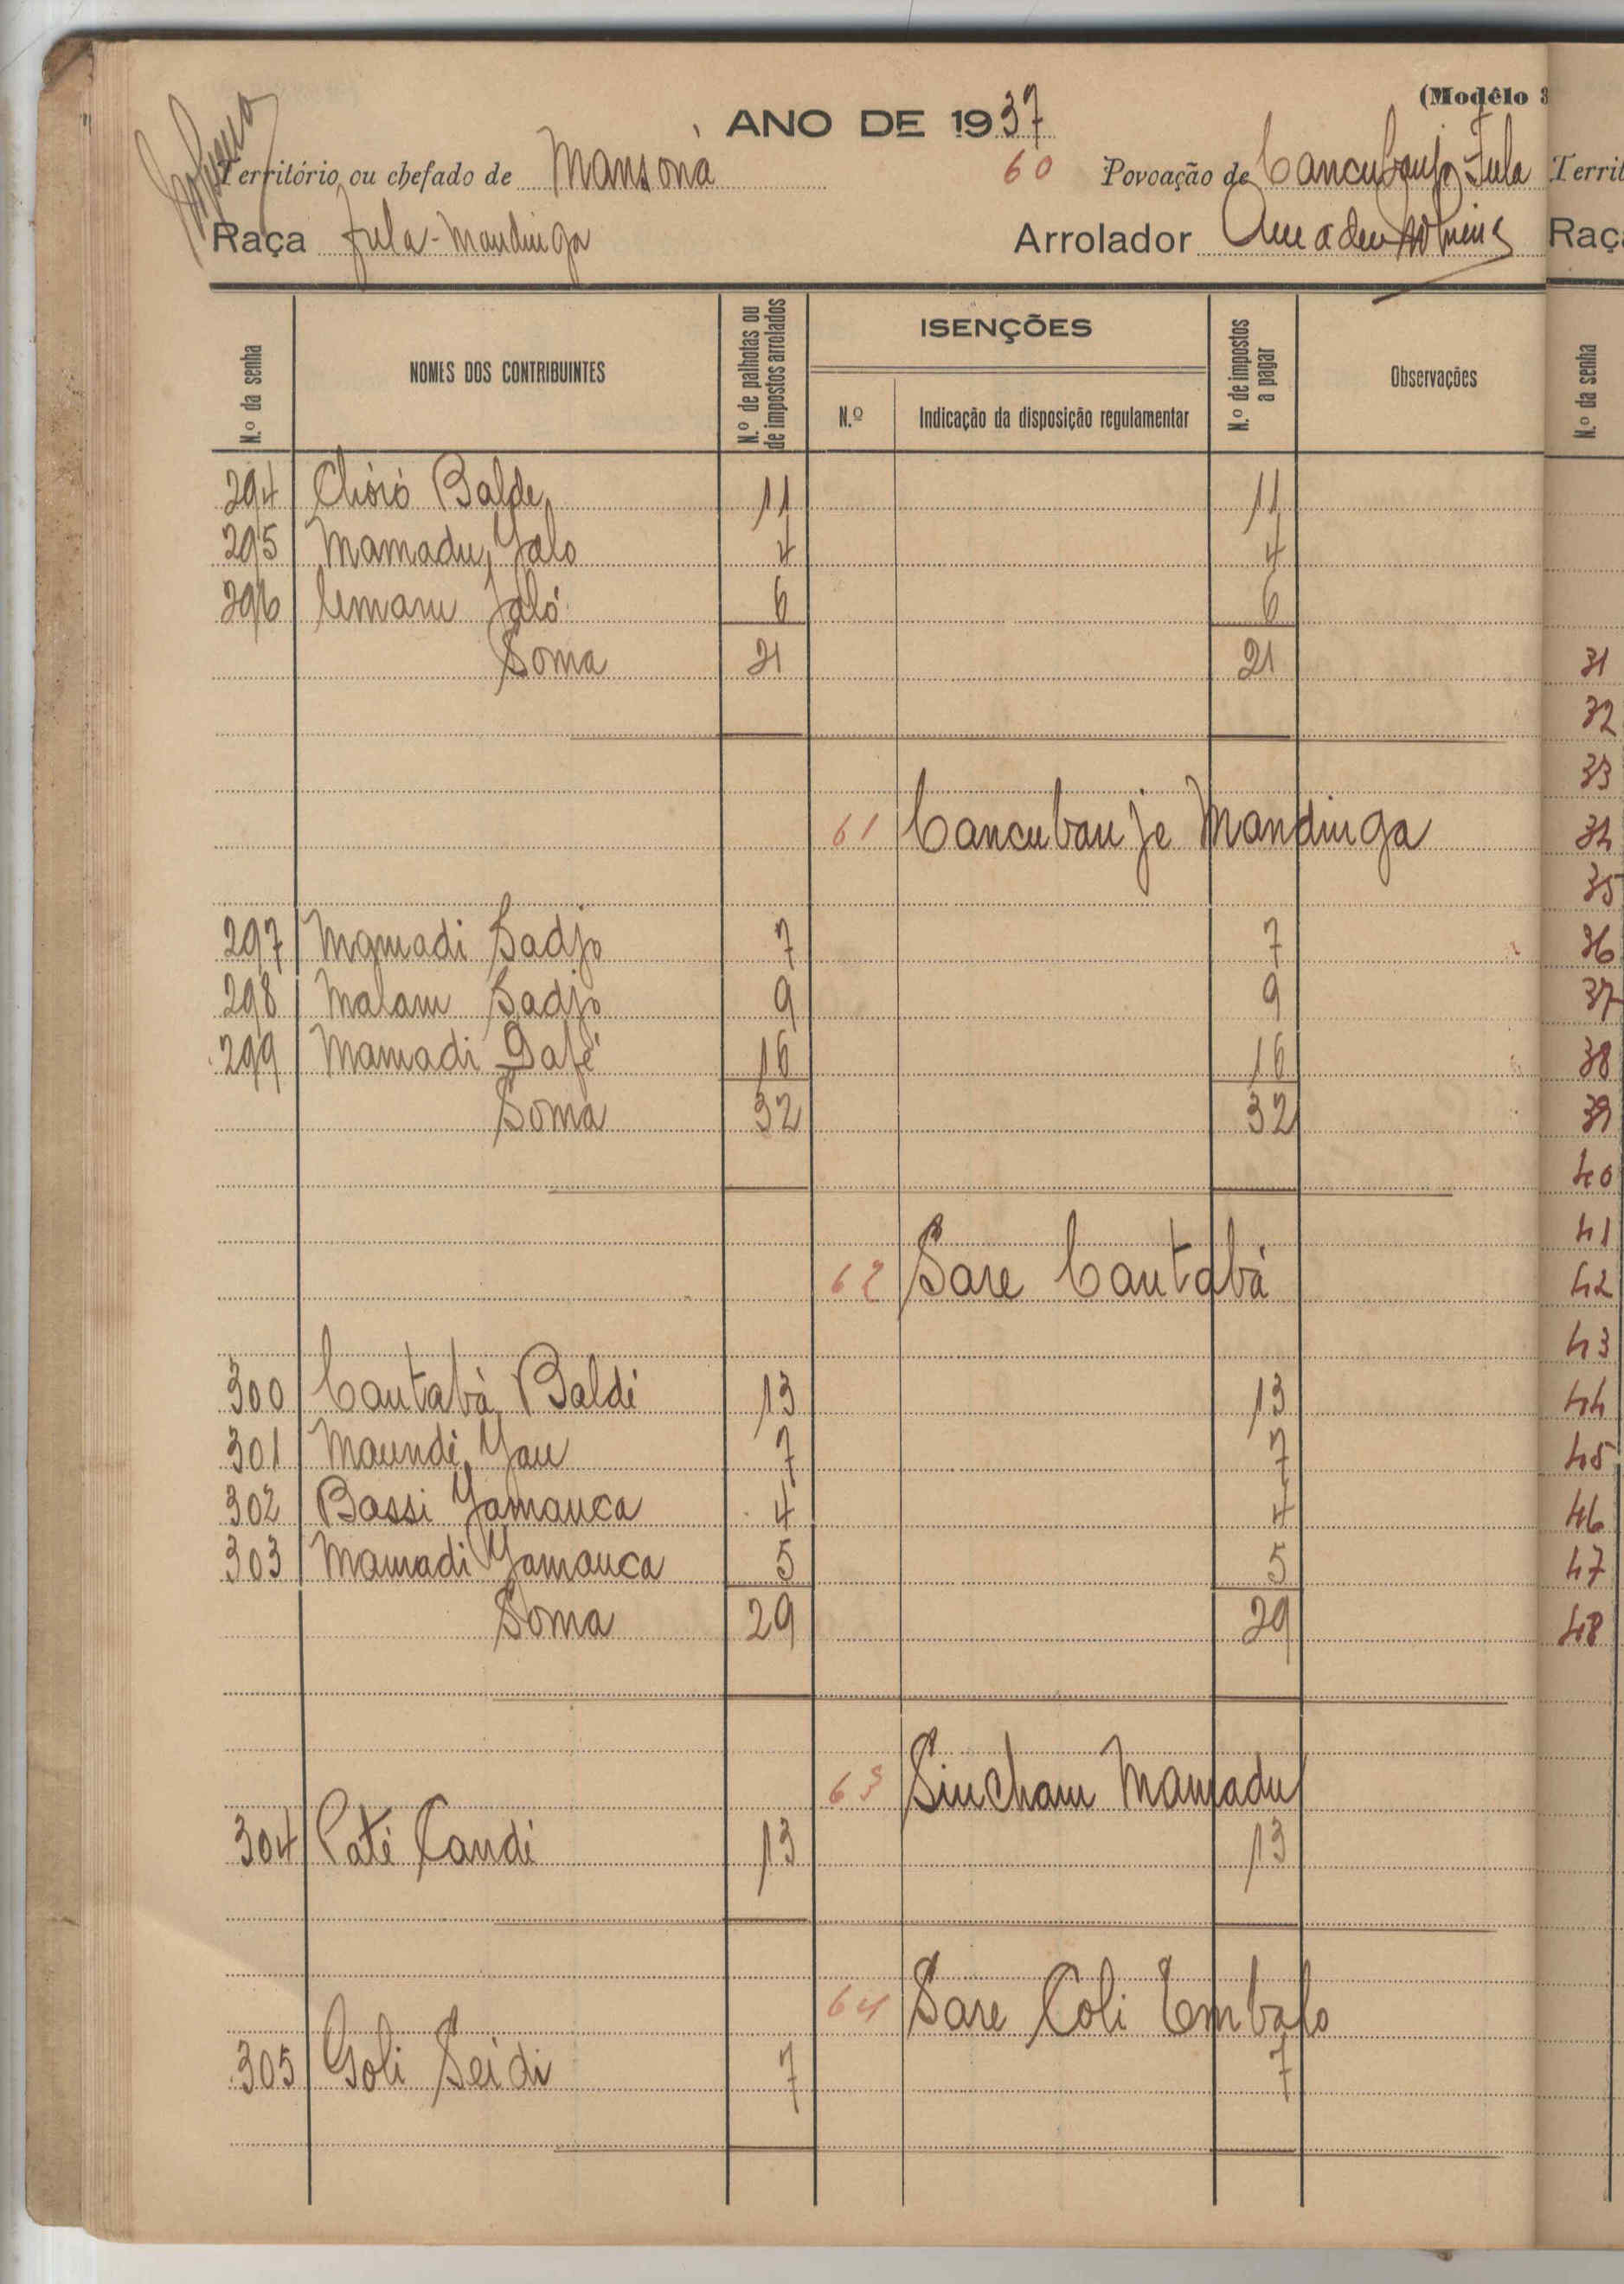 (Modêlo 3
ANO DE 1937
Território ou chefado de Mansona 60 Povoação de Cancubanje Fula
Raça Fula-Mandinga Arrolador Amadeu
N.º da senha NOMES DOS CONTRIBUINTES N.º de palhotas ou de impostos arrolados ISENÇÕES N.º de impostos a pagar Observações
N.º Indicação da disposição regulamentar
294 Chóró Balde 11 11
295 Mamadu Jalo 4 4
296 Umaru Jaló 6 6
Soma 21 21
61 Cancubanje Mandinga
297 Mamadi Sadjo 7 7
298 Malam Sadjo 9 9
299 Mamadi Dafé 16 16
Soma 32 32
62 Sare Cantabá
300 Cantabá Baldé 13 13
301 Maundé Jau 7 7
302 Bassi Jamanca 4 4
303 Mamadi Jamanca 5 5
Soma 29 29
63 Sincham Mamadu
304 Paté Candé 13 13
64 Sare Coli Embalo
305 Goli Seidi 7 7
Territ
Raça
N.º da senha
31
32
33
34
35
36
37
38
39
40
41
42
43
44
45
46
47
48